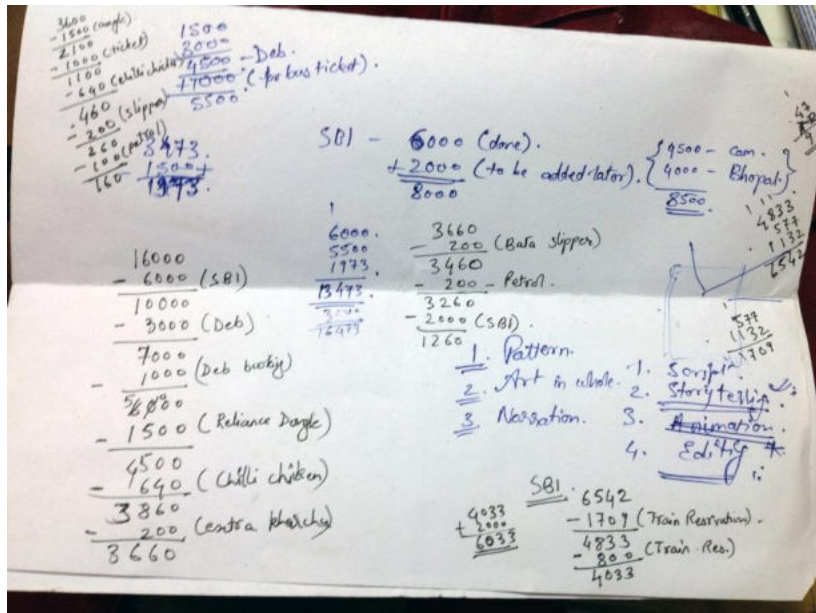 3600
- 1500 (dongle)
2100
- 1000 (ticket)
1100
- 640 (chilli chicken)
460
- 200 (slipper)
260
- 100 (petrol)
160
1500
3000
4500 - Deb.
+1000 (for bus ticket).
5500
3473.
1500+
1973.
SBI - 6000 (done).
+ 2000 (to be added later).
8000
4500 - cam.
4000 - Bhopal.
8500
4833
577
1132
6542
6000.
5500
1973
13473
3000
16473
577
1132
1709
16000
- 6000 (SBI)
10000
- 3000 (Deb)
7000
- 1000 (Deb booking)
6000
- 1500 (Reliance Dongle)
4500
- 640 (Chilli chicken)
3860
- 200 (extra kharcha)
3660
3660
- 200 (Bata slipper)
3460
- 200 - Petrol.
3260
- 2000 (SBI).
1260
1. Pattern.
2. Art in whole.
3. Narration.
1. Script.
2. Storytelling.
3. Animation.
4. Editing
SBI.
4033
+ 2000
6033
6542
- 1709 (Train Reservation).
4833
- 800 (Train Res.)
4033